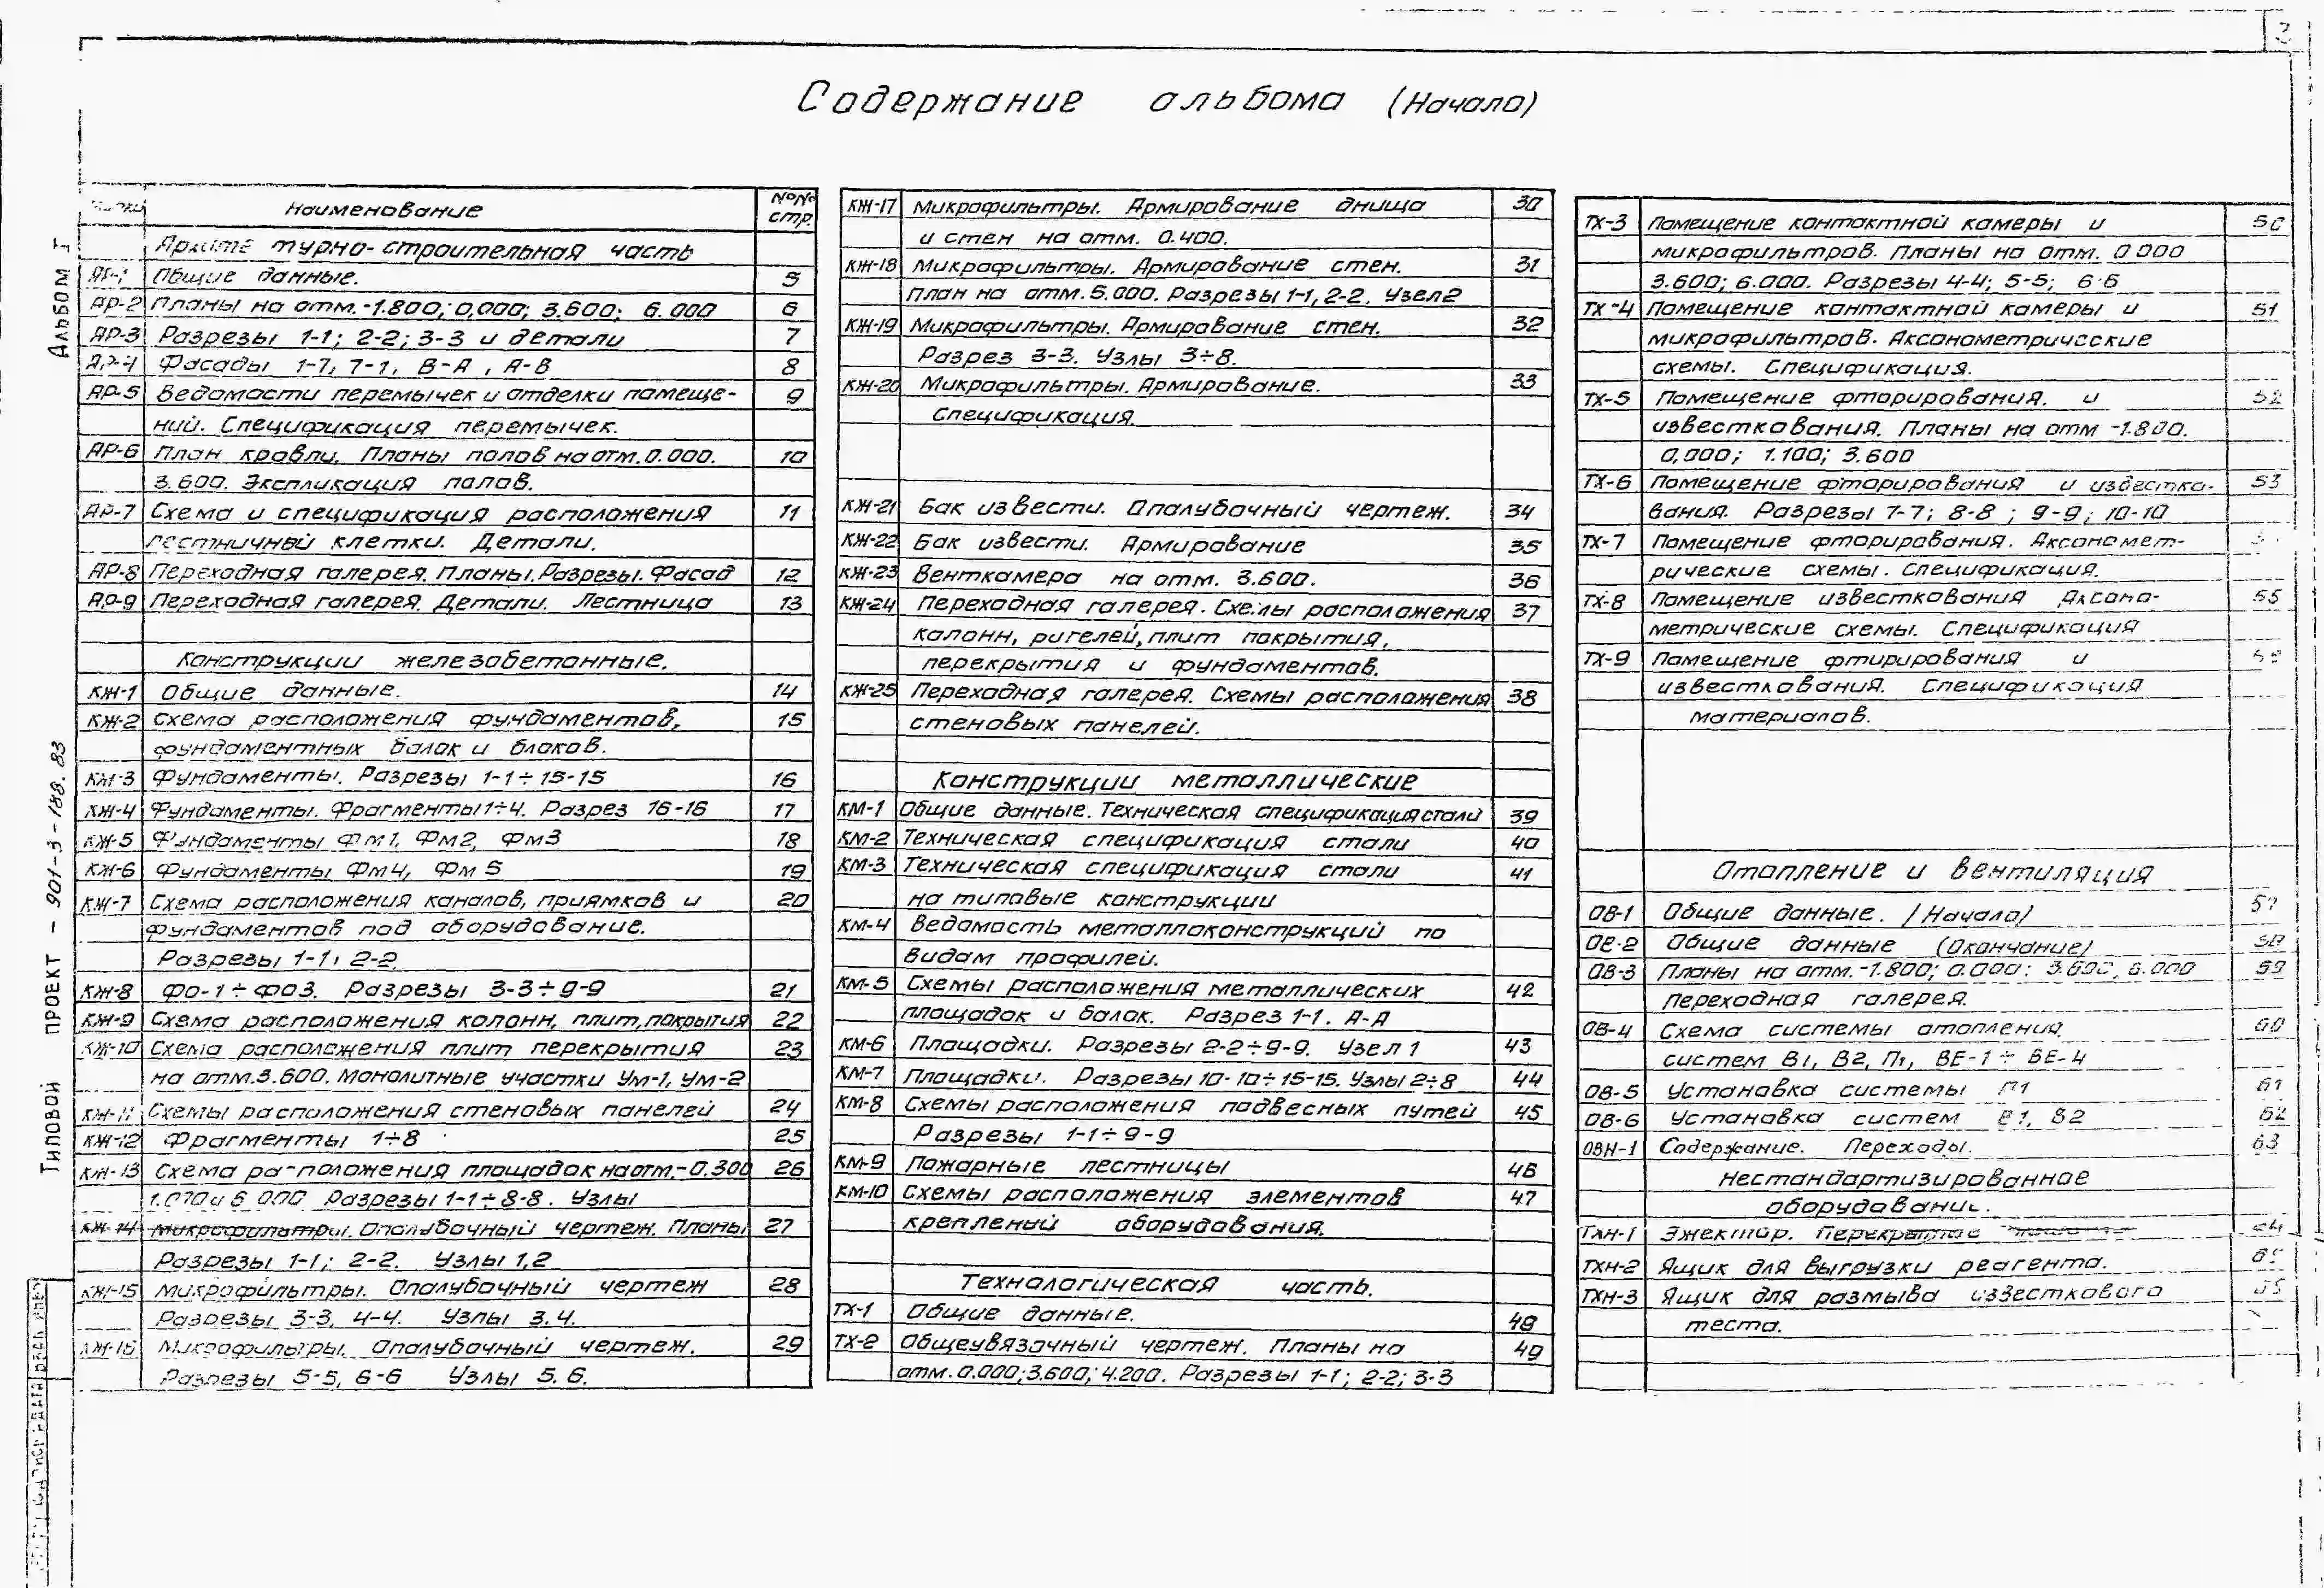 Содержание альбома (Начало)
Альбом I
Типовой проект - 901-3-188.83
Наименование №№ стр.
турно-строительная часть
АР-1 Общие данные. 5
АР-2 Планы на отм.-1.800; 0,000; 3.600; 6.000 6
АР-3 Разрезы 1-1; 2-2; 3-3 и детали 7
АР-4 Фасады 1-7, 7-1, В-А, А-В 8
АР-5 Ведомости перемычек и отделки помеще- 9
ний. Спецификация перемычек.
АР-6 План кровли. Планы полов на отм. 0.000. 10
3.600. Экспликация полов.
АР-7 Схема и спецификация расположения 11
лестничной клетки. Детали.
АР-8 Переходная галерея. Планы. Разрезы. Фасад 12
АР-9 Переходная галерея. Детали. Лестница 13
Конструкции железобетонные.
КЖ-1 Общие данные. 14
КЖ-2 Схема расположения фундаментов, 15
фундаментных балок и блоков.
КЖ-3 Фундаменты. Разрезы 1-1÷15-15 16
КЖ-4 Фундаменты. Фрагменты 1÷4. Разрез 16-16 17
КЖ-5 Фундаменты Фм1, Фм2, Фм3 18
КЖ-6 Фундаменты Фм4, Фм5 19
КЖ-7 Схема расположения каналов, приямков и 20
фундаментов под оборудование.
Разрезы 1-1, 2-2.
КЖ-8 ФО-1÷ФО3. Разрезы 3-3÷9-9 21
КЖ-9 Схема расположения колонн, плит, покрытия 22
КЖ-10 Схема расположения плит перекрытия 23
на отм.3.600. Монолитные участки Ум-1, Ум-2
КЖ-11 Схемы расположения стеновых панелей 24
КЖ-12 Фрагменты 1÷8 25
КЖ-13 Схема расположения площадок на отм.-0.300 26
6.000 Разрезы 1-1÷8-8. Узлы
КЖ-14 Микрофильтры. Опалубочный чертеж. Планы 27
Разрезы 1-1; 2-2. Узлы 1,2
КЖ-15 Микрофильтры. Опалубочный чертеж 28
Разрезы 3-3, 4-4. Узлы 3.4.
КЖ-16 Микрофильтры. Опалубочный чертеж. 29
Разрезы 5-5, 6-6 Узлы 5.6.
КЖ-17 Микрофильтры. Армирование днища 30
и стен на отм. 0.400.
КЖ-18 Микрофильтры. Армирование стен. 31
План на отм.5.000. Разрезы 1-1, 2-2. Узел 2
КЖ-19 Микрофильтры. Армирование стен. 32
Разрез 3-3. Узлы 3÷8.
КЖ-20 Микрофильтры. Армирование. 33
Спецификация.
КЖ-21 Бак извести. Опалубочный чертеж. 34
КЖ-22 Бак извести. Армирование 35
КЖ-23 Венткамера на отм. 3.600. 36
КЖ-24 Переходная галерея. Схемы расположения 37
колонн, ригелей, плит покрытия,
перекрытия и фундаментов.
КЖ-25 Переходная галерея. Схемы расположения 38
стеновых панелей.
Конструкции металлические
КМ-1 Общие данные. Техническая спецификация стали 39
КМ-2 Техническая спецификация стали 40
КМ-3 Техническая спецификация стали 41
на типовые конструкции
КМ-4 Ведомость металлоконструкций по
видам профилей.
КМ-5 Схемы расположения металлических 42
площадок и балок. Разрез 1-1. А-А
КМ-6 Площадки. Разрезы 2-2÷9-9. Узел 1 43
КМ-7 Площадки. Разрезы 10-10÷15-15. Узлы 2÷8 44
КМ-8 Схемы расположения подвесных путей 45
Разрезы 1-1÷9-9
КМ-9 Пожарные лестницы 46
КМ-10 Схемы расположения элементов 47
креплений оборудования.
Технологическая часть.
ТХ-1 Общие данные. 48
ТХ-2 Общеувязочный чертеж. Планы на 49
отм.0.000; 3.600; 4.200. Разрезы 1-1; 2-2; 3-3
ТХ-3 Помещение контактной камеры и 50
микрофильтров. Планы на отм. 0.000
3.600; 6.000. Разрезы 4-4; 5-5; 6-6
ТХ-4 Помещение контактной камеры и 51
микрофильтров. Аксонометрические
схемы. Спецификация.
ТХ-5 Помещение фторирования. и 52
известкования. Планы на отм -1.800.
0,000; 1.100; 3.600
ТХ-6 Помещение фторирования и известко- 53
вания. Разрезы 7-7; 8-8; 9-9; 10-10
ТХ-7 Помещение фторирования. Аксономет-
рические схемы. Спецификация.
ТХ-8 Помещение известкования Аксоно- 55
метрические схемы. Спецификация
ТХ-9 Помещение фтирирования и
известкования. Спецификация
материалов.
Отопление и вентиляция
ОВ-1 Общие данные. /Начало/ 57
ОВ-2 Общие данные (Окончание) 58
ОВ-3 Планы на отм.-1.800; 0.000; 3.600, 6.000 59
переходная галерея.
ОВ-4 Схема системы отопления, 60
систем В1, В2, П1, ВЕ-1÷ВЕ-4
ОВ-5 Установка системы П1 61
ОВ-6 Установка систем В1, В2 62
ОВН-1 Содержание. Переходы. 63
Нестандартизированное
оборудование.
ТХН-1 Эжектор. 64
ТХН-2 Ящик для выгрузки реагента. 65
ТХН-3 Ящик для размыва известкового
теста.